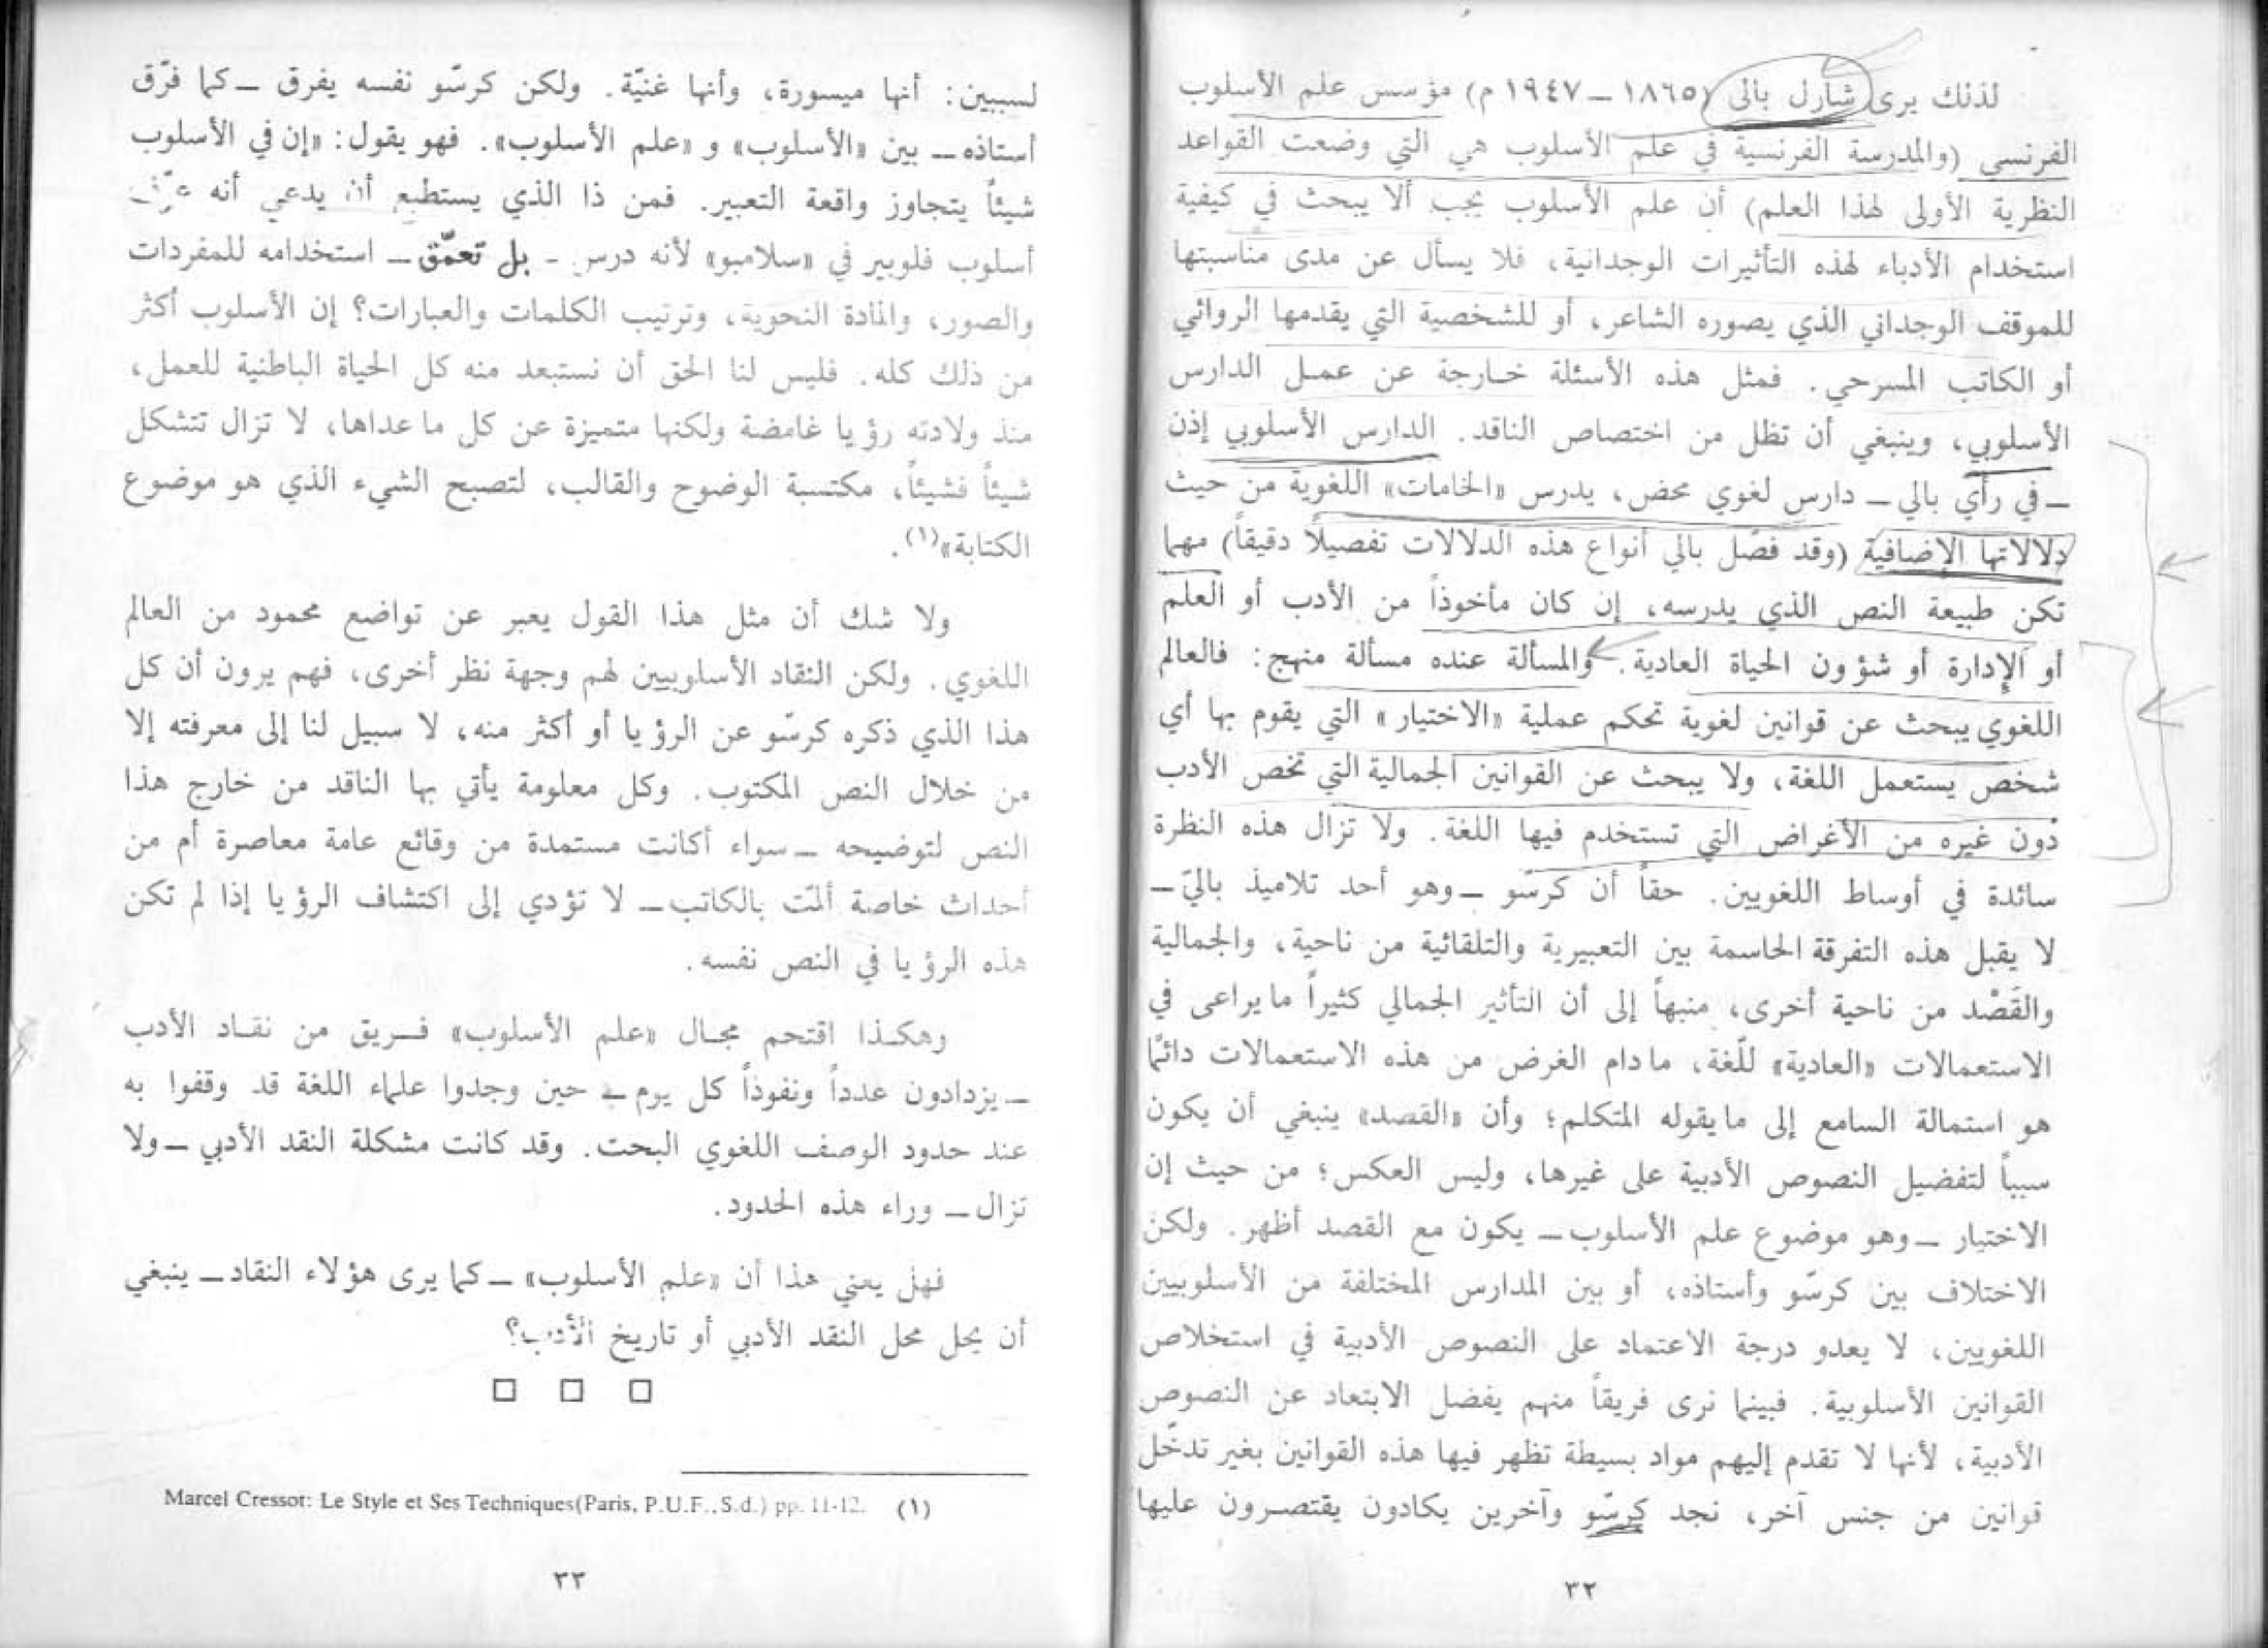 لذلك يرى شارل بالى (١٨٦٥ – ١٩٤٧ م) مؤسس علم الأسلوب
الفرنسي (والمدرسة الفرنسية في علم الأسلوب هي التي وضعت القواعد
النظرية الأولى لهذا العلم) أن علم الأسلوب يجب ألا يبحث في كيفية
استخدام الأدباء لهذه التأثيرات الوجدانية، فلا يسأل عن مدى مناسبتها
للموقف الوجداني الذي يصوره الشاعر، أو للشخصية التي يقدمها الروائي
أو الكاتب المسرحي. فمثل هذه الأسئلة خارجة عن عمل الدارس
الأسلوبي، وينبغي أن تظل من اختصاص الناقد. الدارس الأسلوبي إذن
– في رأي بالي – دارس لغوي محض، يدرس «الخامات» اللغوية من حيث
دلالاتها الإضافية (وقد فصّل بالي أنواع هذه الدلالات تفصيلاً دقيقاً) مهما
تكن طبيعة النص الذي يدرسه، إن كان مأخوذاً من الأدب أو العلم
أو الإدارة أو شؤون الحياة العادية. والمسألة عنده مسألة منهج: فالعالم
اللغوي يبحث عن قوانين لغوية تحكم عملية «الاختيار» التي يقوم بها أي
شخص يستعمل اللغة، ولا يبحث عن القوانين الجمالية التي تخص الأدب
دون غيره من الأغراض التي تستخدم فيها اللغة. ولا تزال هذه النظرة
سائدة في أوساط اللغويين. حقاً أن كرسّو – وهو أحد تلاميذ باليّ –
لا يقبل هذه التفرقة الحاسمة بين التعبيرية والتلقائية من ناحية، والجمالية
والقَصْد من ناحية أخرى، منبهاً إلى أن التأثير الجمالي كثيراً ما يراعى في
الاستعمالات «العادية» للّغة، ما دام الغرض من هذه الاستعمالات دائمًا
هو استمالة السامع إلى ما يقوله المتكلم؛ وأن «القصد» ينبغي أن يكون
سبباً لتفضيل النصوص الأدبية على غيرها، وليس العكس؛ من حيث إن
الاختيار – وهو موضوع علم الأسلوب – يكون مع القصد أظهر. ولكن
الاختلاف بين كرسّو وأستاذه، أو بين المدارس المختلفة من الأسلوبيين
اللغويين، لا يعدو درجة الاعتماد على النصوص الأدبية في استخلاص
القوانين الأسلوبية. فبينما نرى فريقاً منهم يفضل الابتعاد عن النصوص
الأدبية، لأنها لا تقدم إليهم مواد بسيطة تظهر فيها هذه القوانين بغير تدخّل
قوانين من جنس آخر، نجد كرسّو وآخرين يكادون يقتصرون عليها
٣٢
لسببين: أنها ميسورة، وأنها غنيّة. ولكن كرسّو نفسه يفرق – كما فرّق
أستاذه – بين «الأسلوب» و «علم الأسلوب». فهو يقول: «إن في الأسلوب
شيئاً يتجاوز واقعة التعبير. فمن ذا الذي يستطيع أن يدعي أنه
أسلوب فلوبير في «سلامبو» لأنه درس – بل تعمّق – استخدامه للمفردات
والصور، والمادة النحوية، وترتيب الكلمات والعبارات؟ إن الأسلوب أكثر
من ذلك كله. فليس لنا الحق أن نستبعد منه كل الحياة الباطنية للعمل،
منذ ولادته رؤيا غامضة ولكنها متميزة عن كل ما عداها، لا تزال تتشكل
شيئاً فشيئاً، مكتسبة الوضوح والقالب، لتصبح الشيء الذي هو موضوع
الكتابة»(١).
ولا شك أن مثل هذا القول يعبر عن تواضع محمود من العالم
اللغوي. ولكن النقاد الأسلوبيين لهم وجهة نظر أخرى، فهم يرون أن كل
هذا الذي ذكره كرسّو عن الرؤيا أو أكثر منه، لا سبيل لنا إلى معرفته إلا
من خلال النص المكتوب. وكل معلومة يأتي بها الناقد من خارج هذا
النص لتوضيحه – سواء أكانت مستمدة من وقائع عامة معاصرة أم من
أحداث خاصة ألمّت بالكاتب – لا تؤدي إلى اكتشاف الرؤيا إذا لم تكن
هذه الرؤيا في النص نفسه.
وهكذا اقتحم مجال «علم الأسلوب» فريق من نقاد الأدب
– يزدادون عدداً ونفوذاً كل يوم – حين وجدوا علماء اللغة قد وقفوا به
عند حدود الوصف اللغوي البحت. وقد كانت مشكلة النقد الأدبي – ولا
تزال – وراء هذه الحدود.
فهل يعني هذا أن «علم الأسلوب» – كما يرى هؤلاء النقاد – ينبغي
أن يحل محل النقد الأدبي أو تاريخ الأدب؟
(١) Marcel Cressot: Le Style et Ses Techniques(Paris, P.U.F., S.d.) pp. 11-12.
٣٣